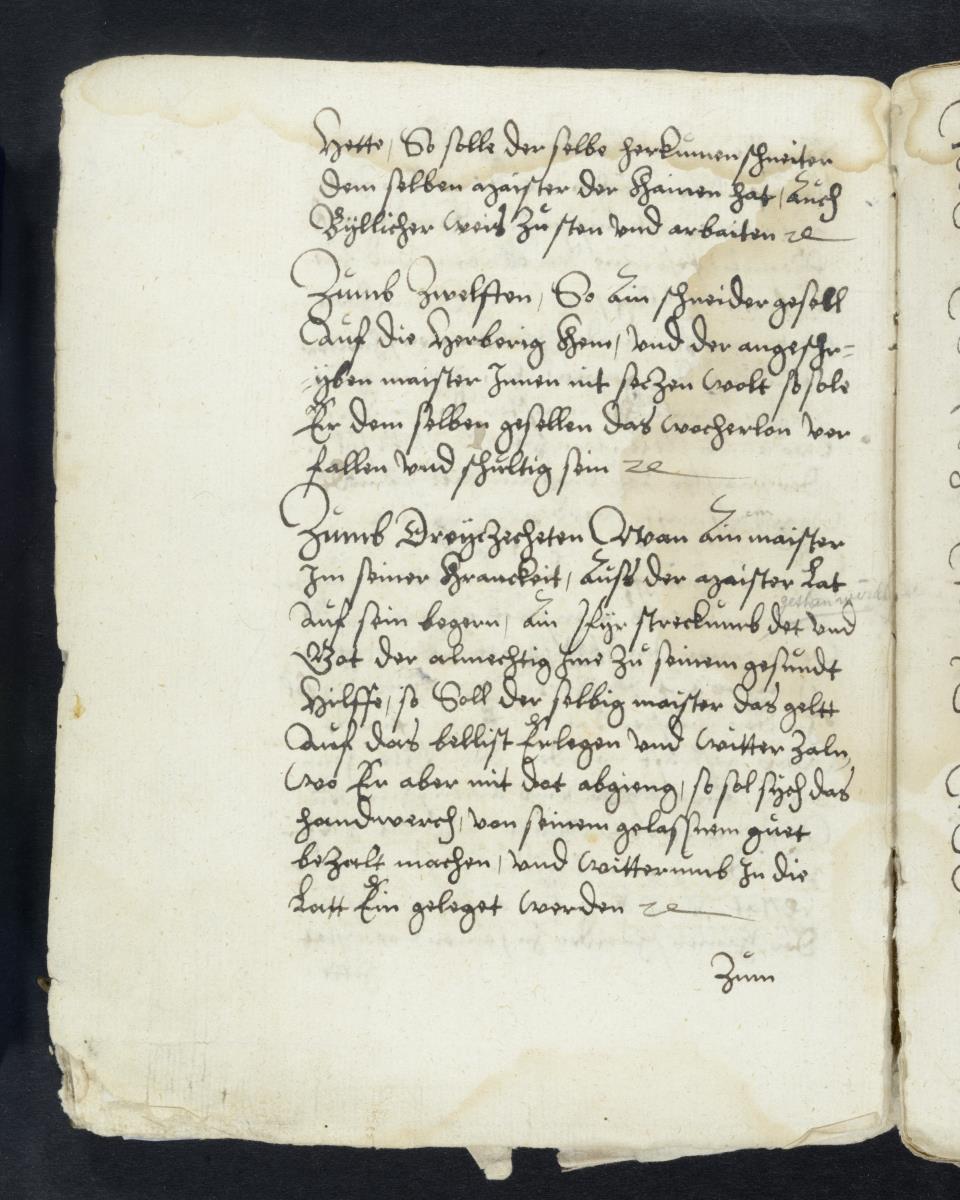 Hette, So solle der selbe herkumen schneiter
dem selben maister der Kainen hat, Auch
Byllicher weis Zu sten vnd arbaiten ꝛc
Zumb Zwelfften, So Ain schneider gesell
Auf die Herberig Keme, vnd der angeschr=
=yben maister Innen nit seczen wolt so sole
Er dem selben gesellen das wocherlon ver
fallen vnd schultig sein ꝛc
Zumb Dreyczecheten Wan Ain maister
Im seiner Kranckeit, Auss der maister Lat
Auf sein begern, Ain Fyr streckumb det vnd
Got der almechtig Ime Zu seinem gesundt
Hilffe, so Soll der selbig maister das geltt
Auf das bellist Erlegen vnd witter Zaln,
Wo Er aber mit dot abgieng, so sol sych das
handwerch, von seinem gelassnem guet
beZalt machen, vnd witterumb In die
Latt Ein geleget werden ꝛc
Zum